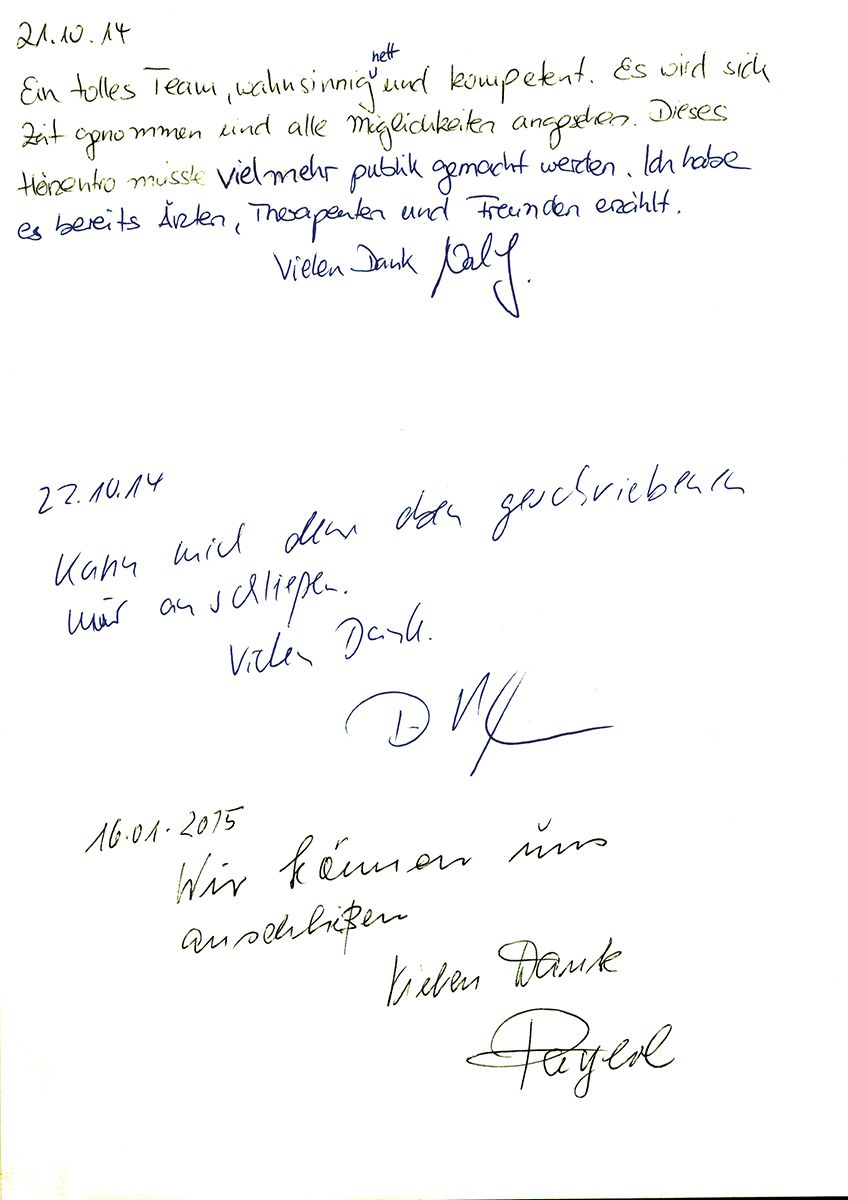 21.10.14
Ein tolles Team, wahnsinnig nett und kompetent. Es wird sich
Zeit genommen und alle Möglichkeiten angesehen. Dieses
müsste vielmehr publik gemacht werden. Ich habe
es bereits Ärzten, Therapeuten und Freunden erzählt.
Vielen Dank
22.10.14
Kann mich dem oben geschriebenen
nur anschließen.
Vielen Dank.
16.01.2015
Wir können uns
anschließen
Vielen Dank